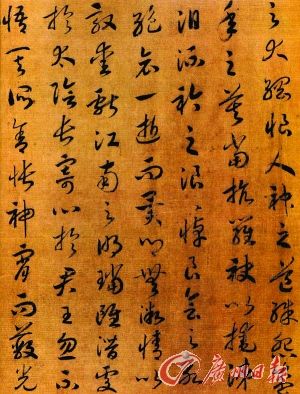 之大綱恨人神之道殊怨盛
年之莫當抗羅袂以掩涕
泪流衿之浪浪悼良會之永
絕哀一逝而異鄉無微情以
效愛獻江南之明璫雖潛處
於太陰長寄心於君王忽不
悟其所舍悵神宵而蔽光
廣州日報